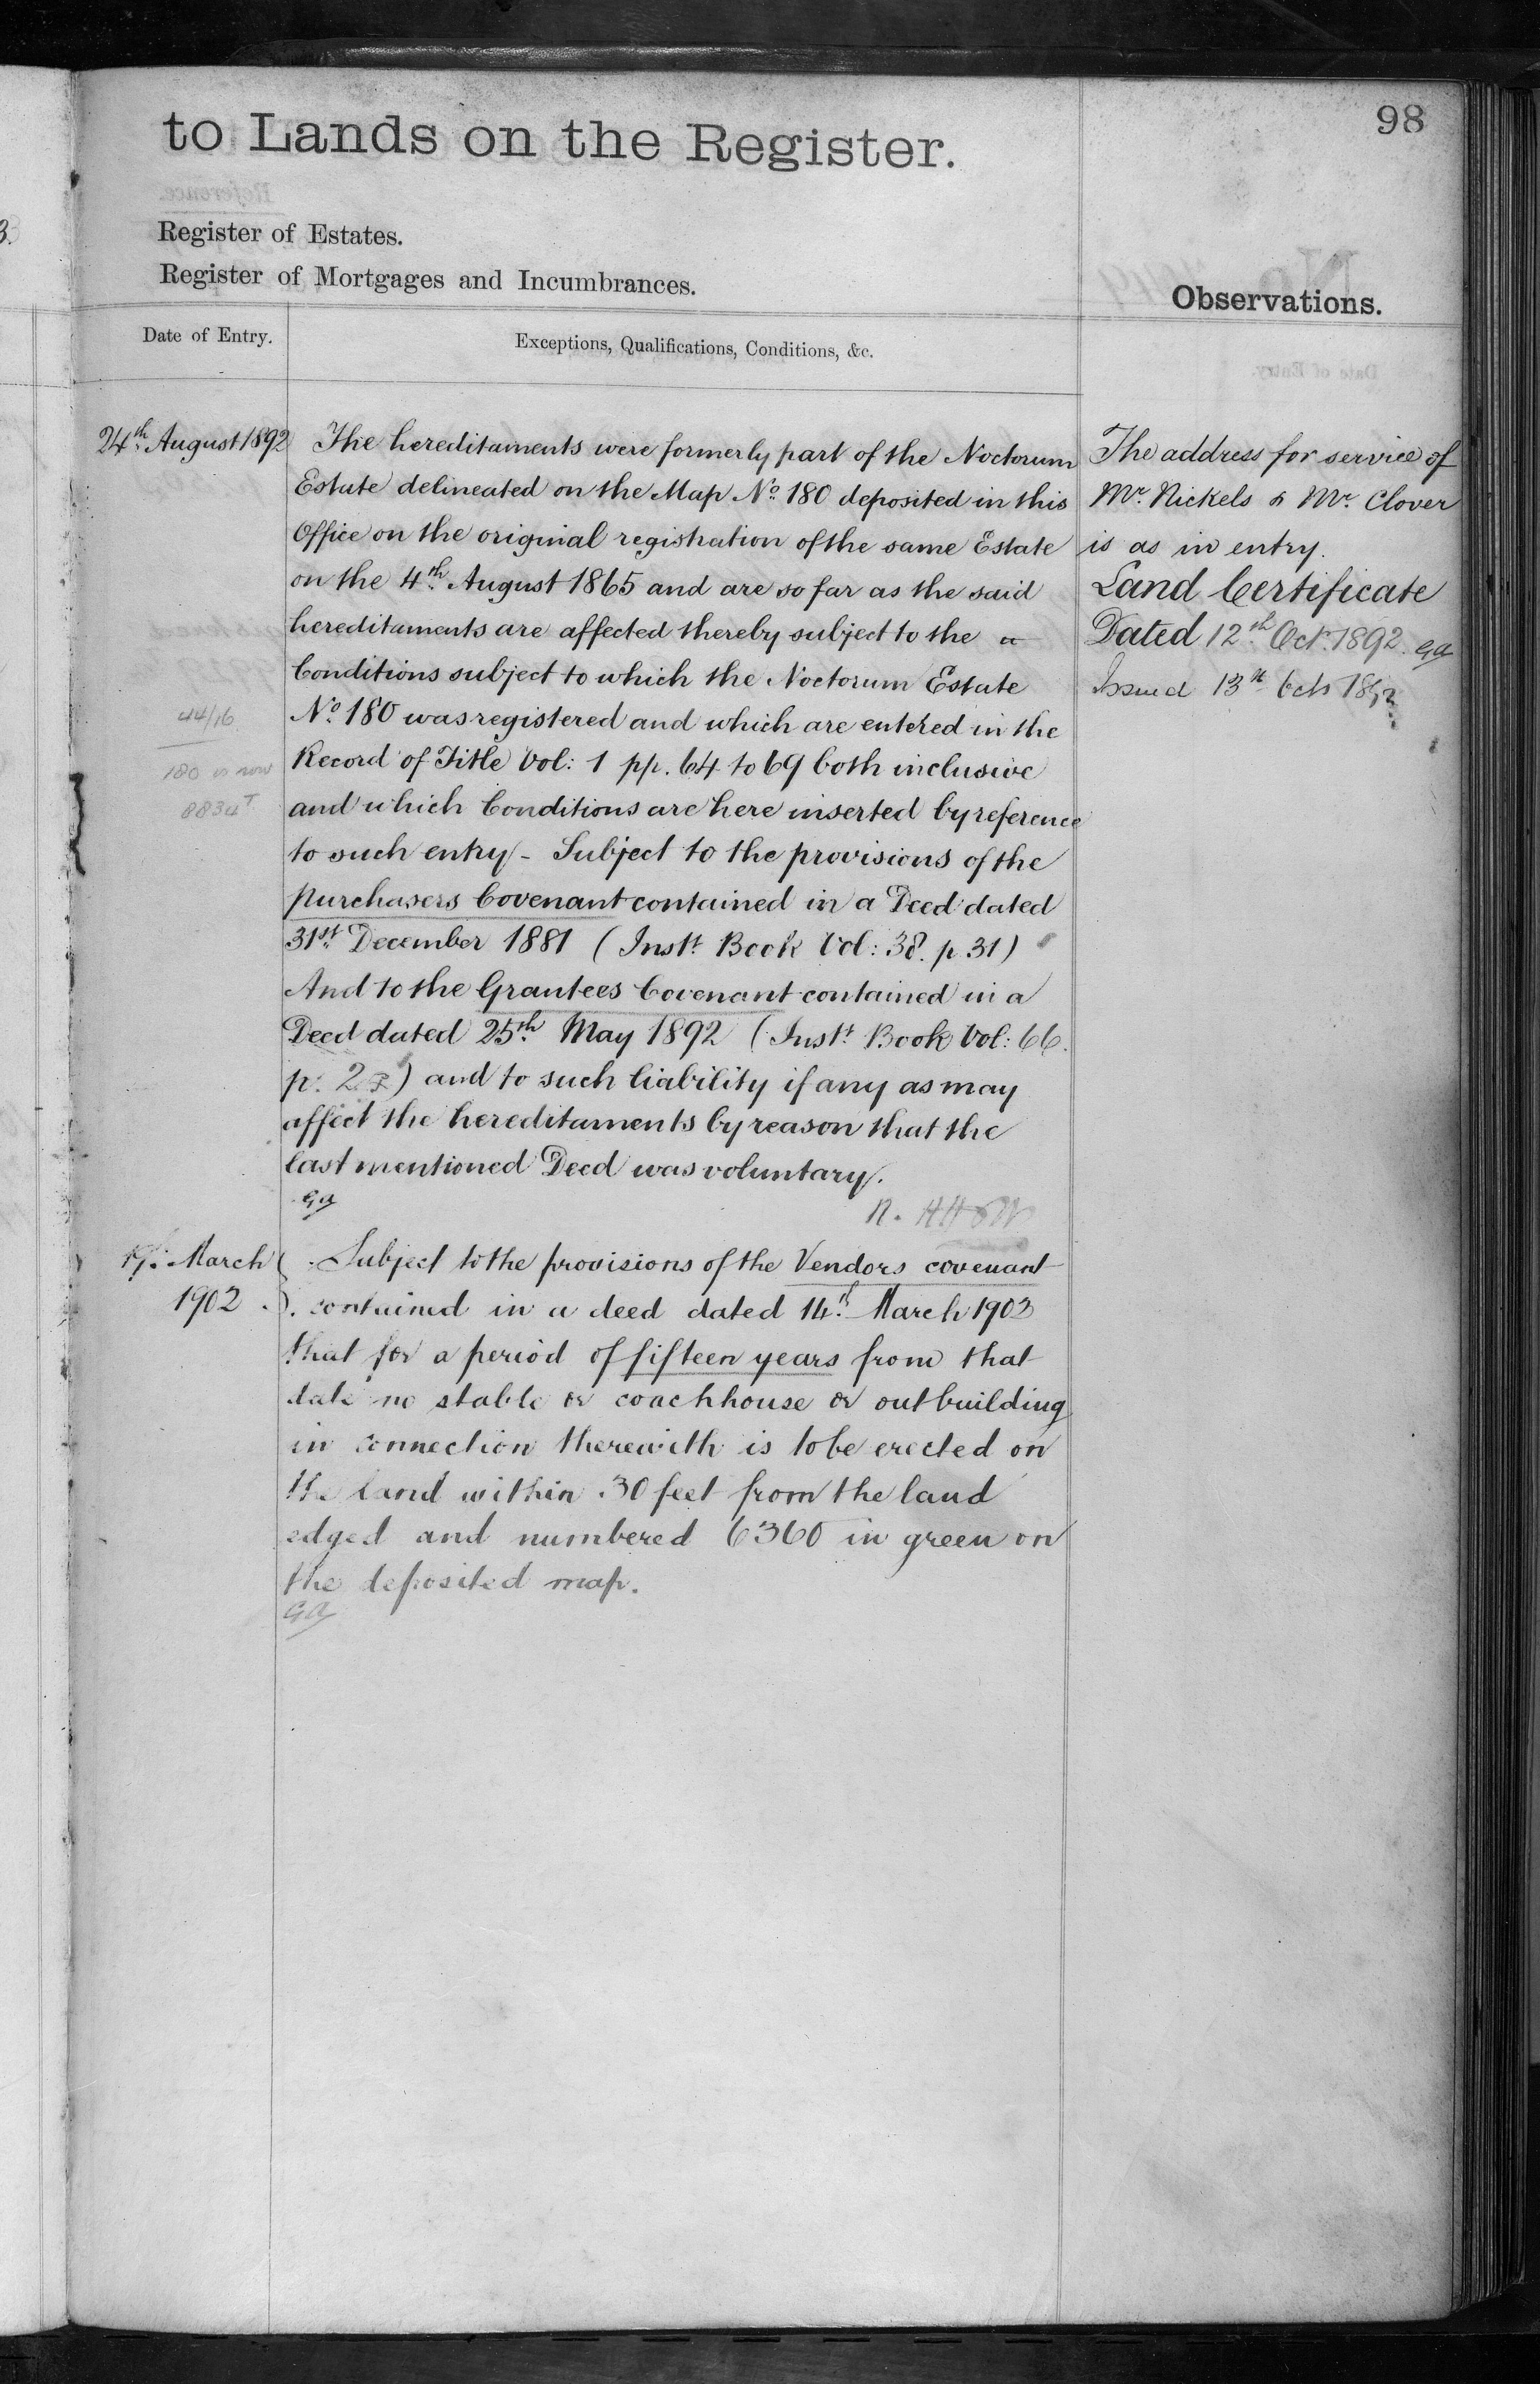 98
to Lands on the Register.
Register of Estates.
Register of Mortgages and Incumbrances.
Observations.
Date of Entry.
Exceptions, Qualifications, Conditions, &c.
24th August 1892
The hereditaments were formerly part of the Noctorum
Estate delineated on the Map No. 180 deposited in this
Office on the original registration of the same Estate
on the 4th August 1865 and are so far as the said
hereditaments are affected thereby subject to the
Conditions subject to which the Noctorum Estate
No. 180 was registered and which are entered in the
Record of Title Vol: 1 pp. 64 to 69 both inclusive
and which Conditions are here inserted by reference
to such entry - Subject to the provisions of the
purchasers Covenant contained in a Deed dated
31st December 1881 (Instt. Book Vol: 38. p. 31)
And to the Grantees Covenant contained in a
Deed dated 25th May 1892 (Instt. Book Vol: 66.
p. 2) and to such liability if any as may
affect the hereditaments by reason that the
last mentioned Deed was voluntary.
GA
44/16
180 is now
8834T
March
1902
Subject to the provisions of the Vendors covenant
contained in a deed dated 14th March 1902
that for a period of fifteen years from that
date no stable or coachhouse or outbuilding
in connection therewith is to be erected on
the land within 30 feet from the land
edged and numbered 6360 in green on
the deposited map.
GA
The address for service of
Mr. Nickels & Mr. Clover
is as in entry.
Land Certificate
Dated 12th Oct. 1892. GA
Issued 13th Octr 1892